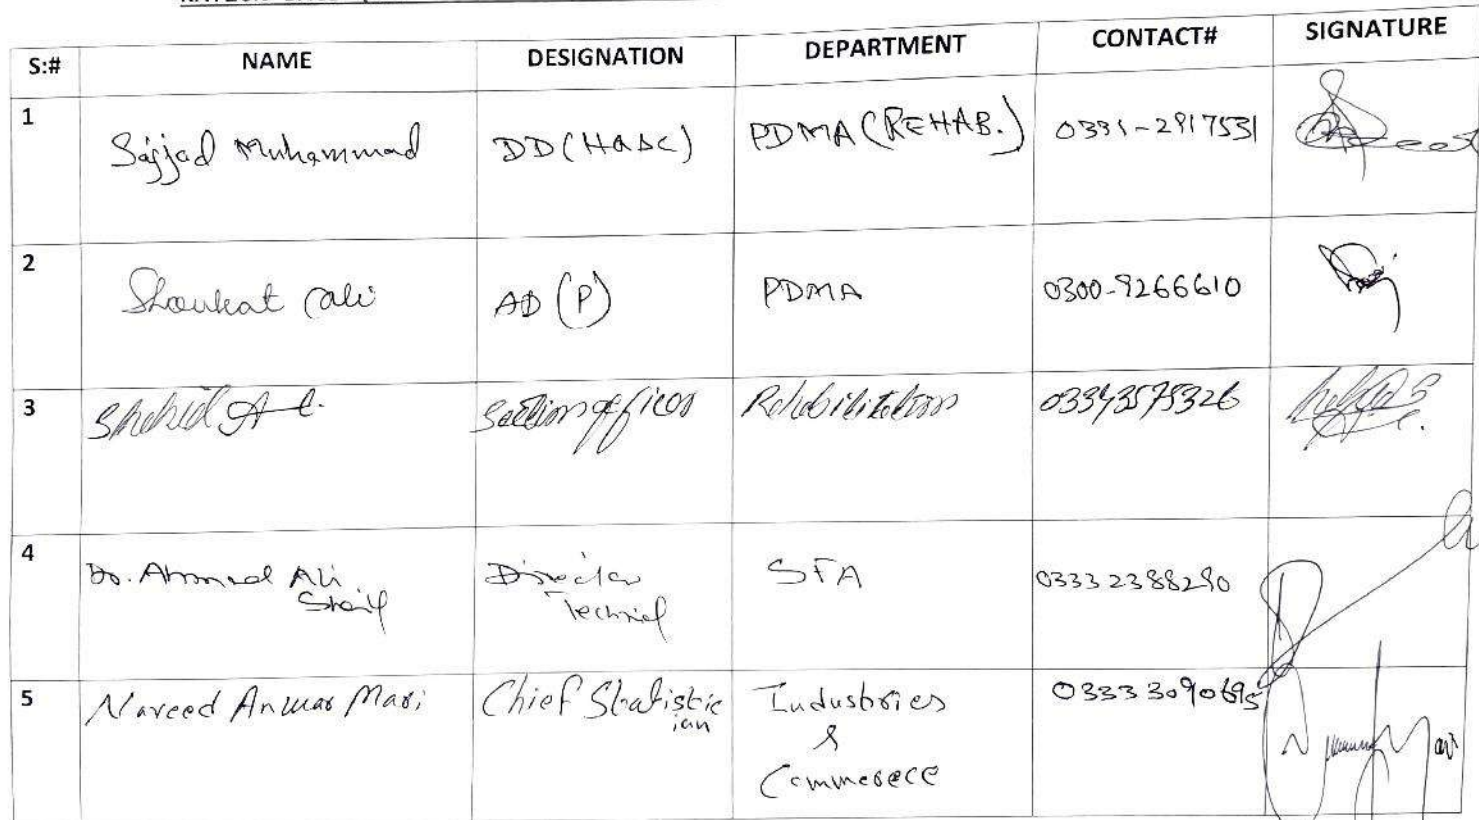 S:# NAME DESIGNATION DEPARTMENT CONTACT# SIGNATURE
1 Sajjad Muhammad DD(HQ&C) PDMA (REHAB.) 0331-2917531
2 Shoukat Ali AD (P) PDMA 0300-9266610
3 Shahid Section officer Rehabilitation 03343575326
4 Dr. Ahmed Ali Director SFA 03332388290
Technical
5 Naveed Anwar Mari Chief Statistic Industries 03333090695
ian &
Commerece